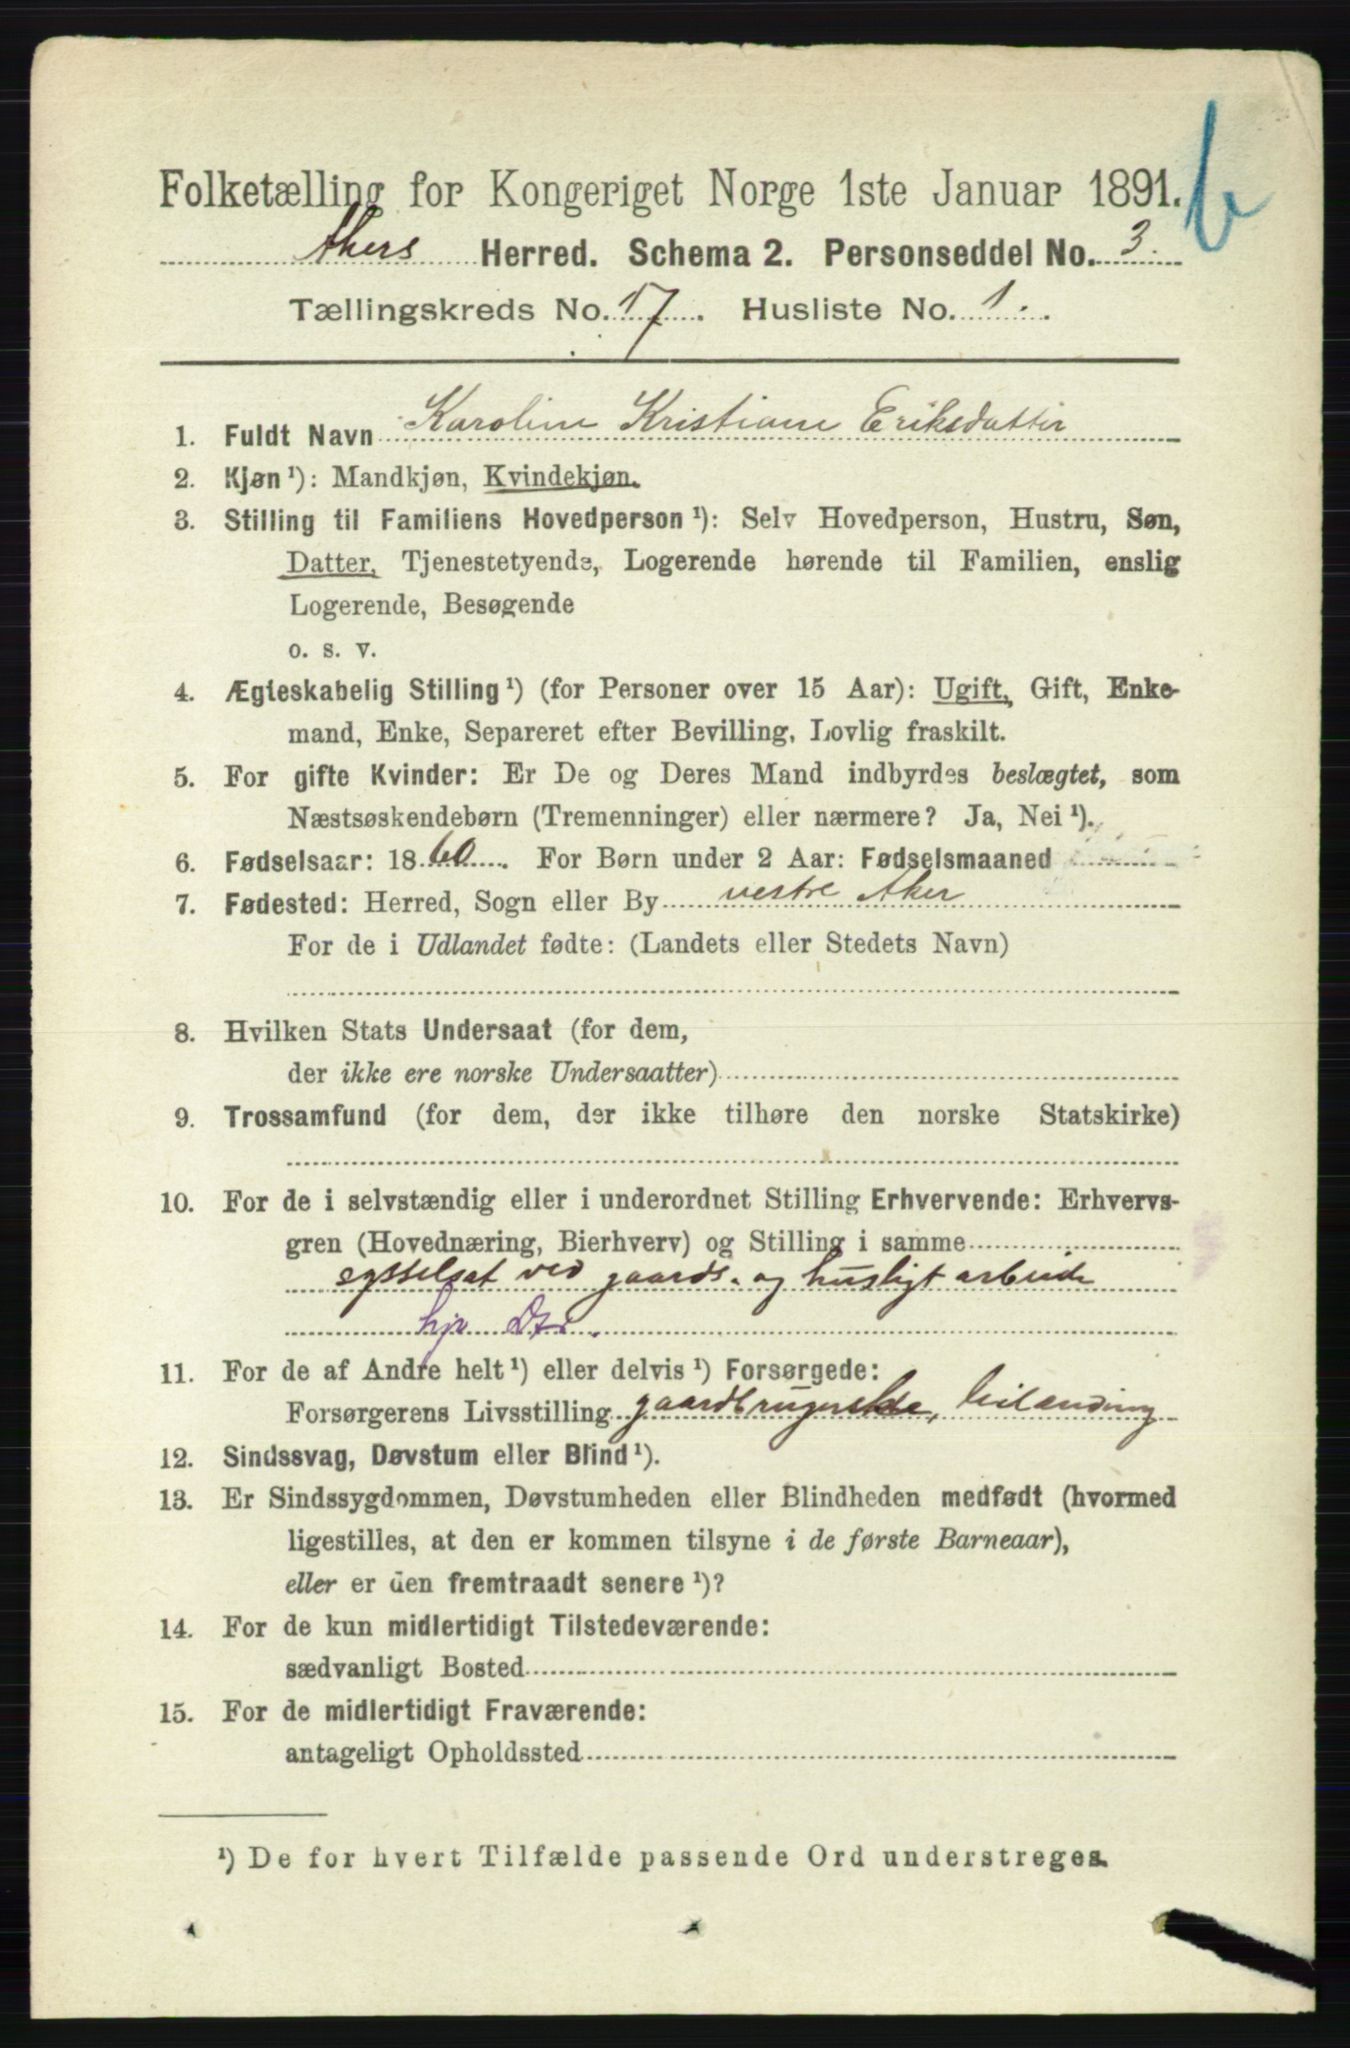 Folketælling for Kongeriget Norge 1ste Januar 1891.
b
Akers Herred. Schema 2. Personseddel No. 3.
Tællingskreds No. 17. Husliste No. 1.
1. Fuldt Navn Karoline Kristiane Eriksdatter
2. Kjøn ¹): Mandkjøn, Kvindekjøn.
3. Stilling til Familiens Hovedperson ¹): Selv Hovedperson, Hustru, Søn,
Datter, Tjenestetyende, Logerende hørende til Familien, enslig
Logerende, Besøgende
o. s. v.
4. Ægteskabelig Stilling ¹) (for Personer over 15 Aar): Ugift, Gift, Enke-
mand, Enke, Separeret efter Bevilling, Lovlig fraskilt.
5. For gifte Kvinder: Er De og Deres Mand indbyrdes beslægtet, som
Næstsøskendebørn (Tremenninger) eller nærmere? Ja, Nei ¹).
6. Fødselsaar: 1860. For Børn under 2 Aar: Fødselsmaaned
7. Fødested: Herred, Sogn eller By vestre Aker
For de i Udlandet fødte: (Landets eller Stedets Navn)
8. Hvilken Stats Undersaat (for dem,
der ikke ere norske Undersaatter)
9. Trossamfund (for dem, der ikke tilhøre den norske Statskirke)
10. For de i selvstændig eller i underordnet Stilling Erhvervende: Erhvervs-
gren (Hovednæring, Bierhverv) og Stilling i samme
sysselsat ved gaards- og husligt arbeide
hje Dtr.
11. For de af Andre helt ¹) eller delvis ¹) Forsørgede:
Forsørgerens Livsstilling
12. Sindssvag, Døvstum eller Blind ¹).
13. Er Sindssygdommen, Døvstumheden eller Blindheden medfødt (hvormed
ligestilles, at den er kommen tilsyne i de første Barneaar),
eller er den fremtraadt senere ¹)?
14. For de kun midlertidigt Tilstedeværende:
sædvanligt Bosted
15. For de midlertidigt Fraværende:
antageligt Opholdssted
¹) De for hvert Tilfælde passende Ord understreges.